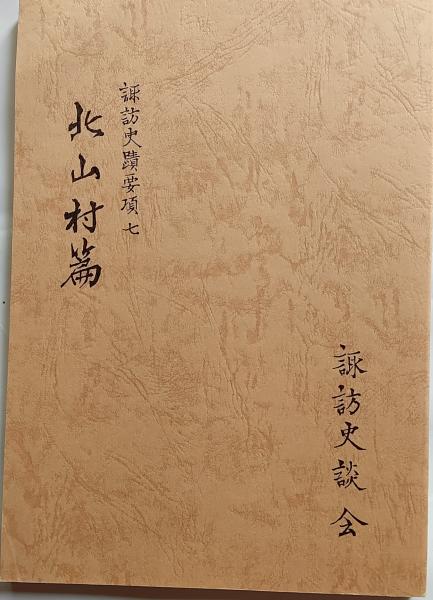 諏訪史蹟要項 七
北山村篇
諏訪史談会